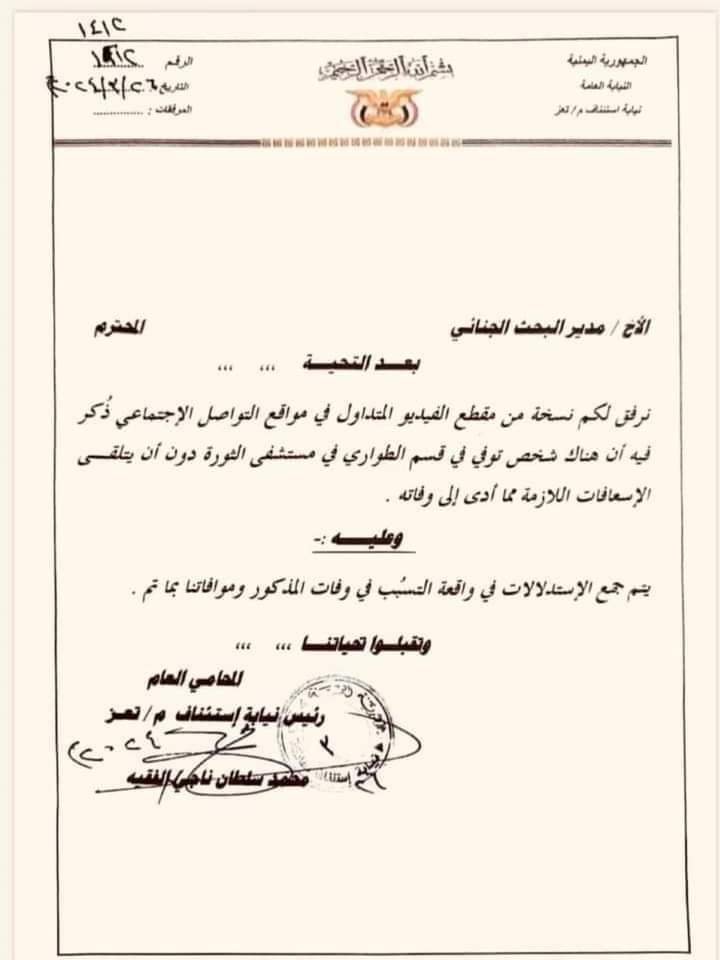 الجمهورية اليمنية
النيابة العامة
نيابة استئناف م/ تعز
بسم الله الرحمن الرحيم
١٤١٢
الرقم
التاريخ ٢٦/٢/٢٠٢٤م
المرفقات : ..............
الأخ / مدير البحث الجنائي المحترم
بعـــد التحيـــة ,,, ,,,
نرفق لكم نسخة من مقطع الفيديو المتداول في مواقع التواصل الإجتماعي ذُكر
فيه أن هناك شخص توفي في قسم الطواري في مستشفى الثورة دون أن يتلقـــى
الإسعافات اللازمة مما أدى إلى وفاته .
وعليـــــه :-
يتم جمع الإستدلالات في واقعة التسبُب في وفات المذكور وموافاتنا بما تم .
وتقبلـــوا تحياتنـــا ,,, ,,,
المحامي العام
رئيس نيابة إستئناف م/ تعــز
محمد سلطان ناجي الفقيه